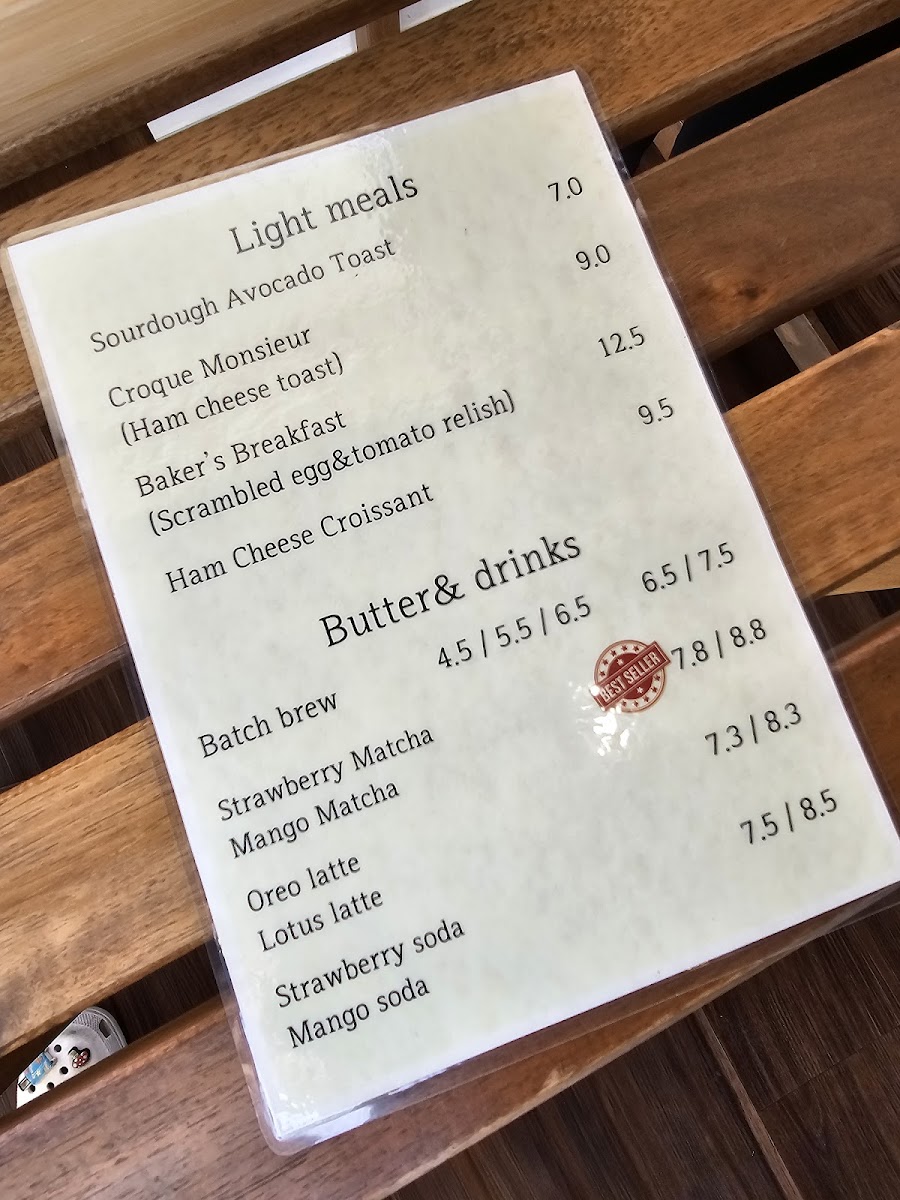 Light meals
Sourdough Avocado Toast 7.0
Croque Monsieur 9.0
(Ham cheese toast)
Baker's Breakfast 12.5
(Scrambled egg&tomato relish)
Ham Cheese Croissant 9.5
Butter& drinks
Batch brew 4.5 / 5.5 / 6.5 6.5 / 7.5
Strawberry Matcha BEST SELLER 7.8 / 8.8
Mango Matcha
Oreo latte 7.3 / 8.3
Lotus latte
Strawberry soda 7.5 / 8.5
Mango soda